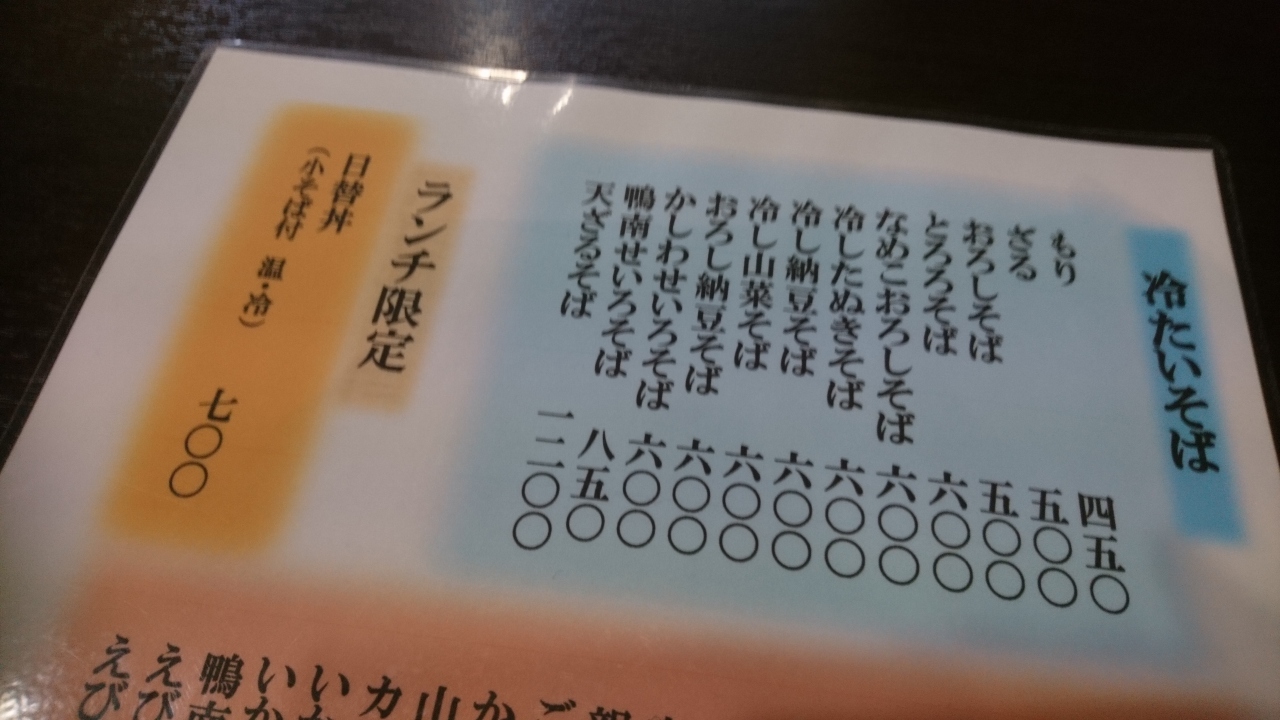 冷たいそば
もり 四五〇
ざる 五〇〇
おろしそば 五〇〇
とろろそば 六〇〇
なめこおろしそば 六〇〇
冷したぬきそば 六〇〇
冷し納豆そば 六〇〇
冷し山菜そば 六〇〇
おろし納豆そば 六〇〇
かしわせいろそば 六〇〇
鴨南せいろそば 八五〇
天ざるそば 一二〇〇
ランチ限定
日替丼
(小そば付 温・冷) 七〇〇
か
山
カ
いか
いか
鴨南
えび
えび